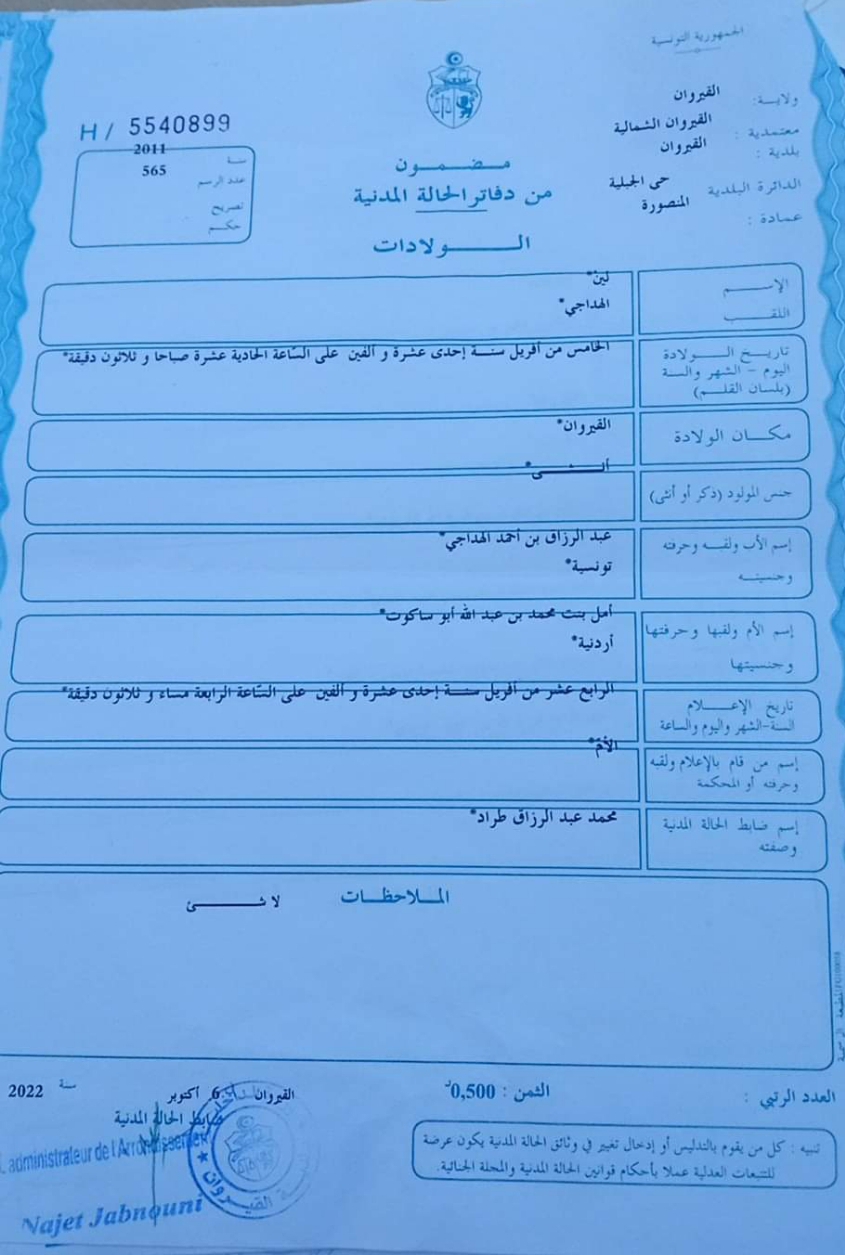 الجمهورية التونسية
ولايـة: القيروان
معتمدية : القيروان الشمالية
بلدية : القيروان
الدائرة البلدية حي الجبلية
عمادة : المنصورة
H / 5540899
سنة 2011
عدد الرسم 565
تصريح
حكم
مضمون
من دفاتر الحالة المدنية
الـولادات
الإسـم لين*
اللقـب الهداجي*
تاريـخ الـولادة الخامس من أفريل سنـة إحدى عشرة و ألفين على الساعة الحادية عشرة صباحا و ثلاثون دقيقة*
اليوم – الشهر والسنة
(بلسان القلـم)
مكـان الولادة القيروان*
جنس المولود (ذكر أو أنثى) أنـثـى*
إسم الأب ولقبـه وحرفته عبد الرزاق بن أحمد الهداجي*
وجنسيتـه تونسية*
إسم الأم ولقبها وحرفتها أمل بنت محمد بن عبد الله أبو ساكوت*
وجنسيتها أردنية*
تاريخ الإعـلام الرابع عشر من أفريل سنـة إحدى عشرة و ألفين على الساعة الرابعة مساء و ثلاثون دقيقة*
السنة-الشهر واليوم والساعة
إسم من قام بالإعلام ولقبه الأم*
وحرفته أو المحكمة
إسم ضابط الحالة المدنية محمد عبد الرزاق طراد*
وصفته
المـلاحظـات لا شـئ
العدد الرتبي :
الثمن : 0,500د
القيروان 6 أكتوبر سنة 2022
ضابط الحالة المدنية
administrateur de l'Arrondissement
Najet Jabnouni
القيروان
تنبيه : كل من يقوم بالتدليس أو إدخال تغيير في وثائق الحالة المدنية يكون عرضة
للتتبعات العدلية عملا بأحكام قوانين الحالة المدنية والمجلة الجنائية.